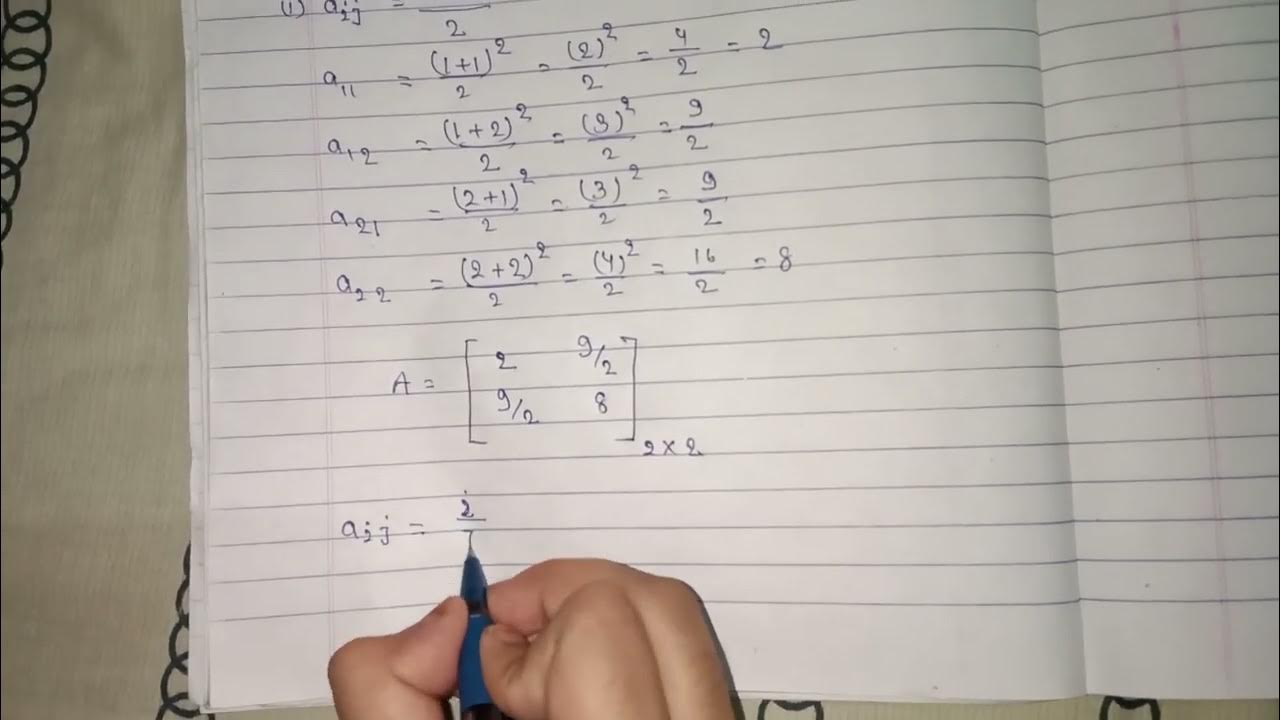 (i) aij = 2
a11 = (1+1)² / 2 = (2)² / 2 = 4/2 = 2
a12 = (1+2)² / 2 = (3)² / 2 = 9/2
a21 = (2+1)² / 2 = (3)² / 2 = 9/2
a22 = (2+2)² / 2 = (4)² / 2 = 16/2 = 8
A = [ 2 9/2
9/2 8 ] 2×2
aij = i